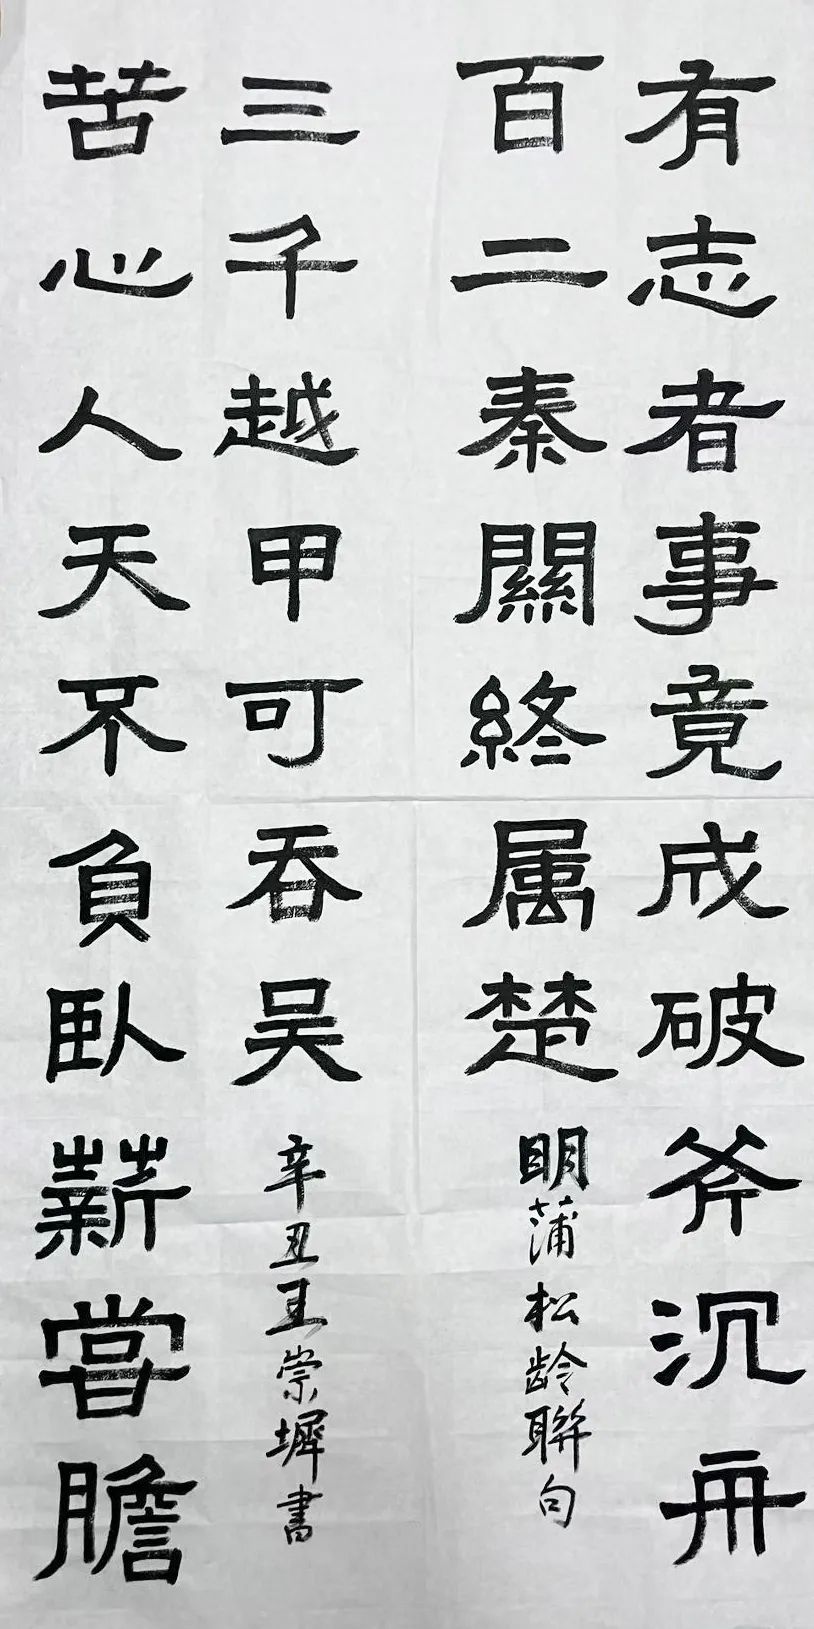 有志者事竟成破斧沉舟
百二秦關終属楚
明蒲松龄聯句
苦心人天不負臥薪嘗膽
三千越甲可吞吴
辛丑王崇墀書